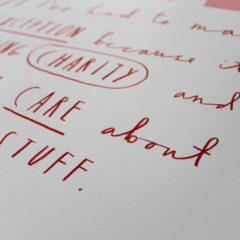 I've had to ma
EXCEPTION because it
ING CHARITY
CARE about and
STUFF.